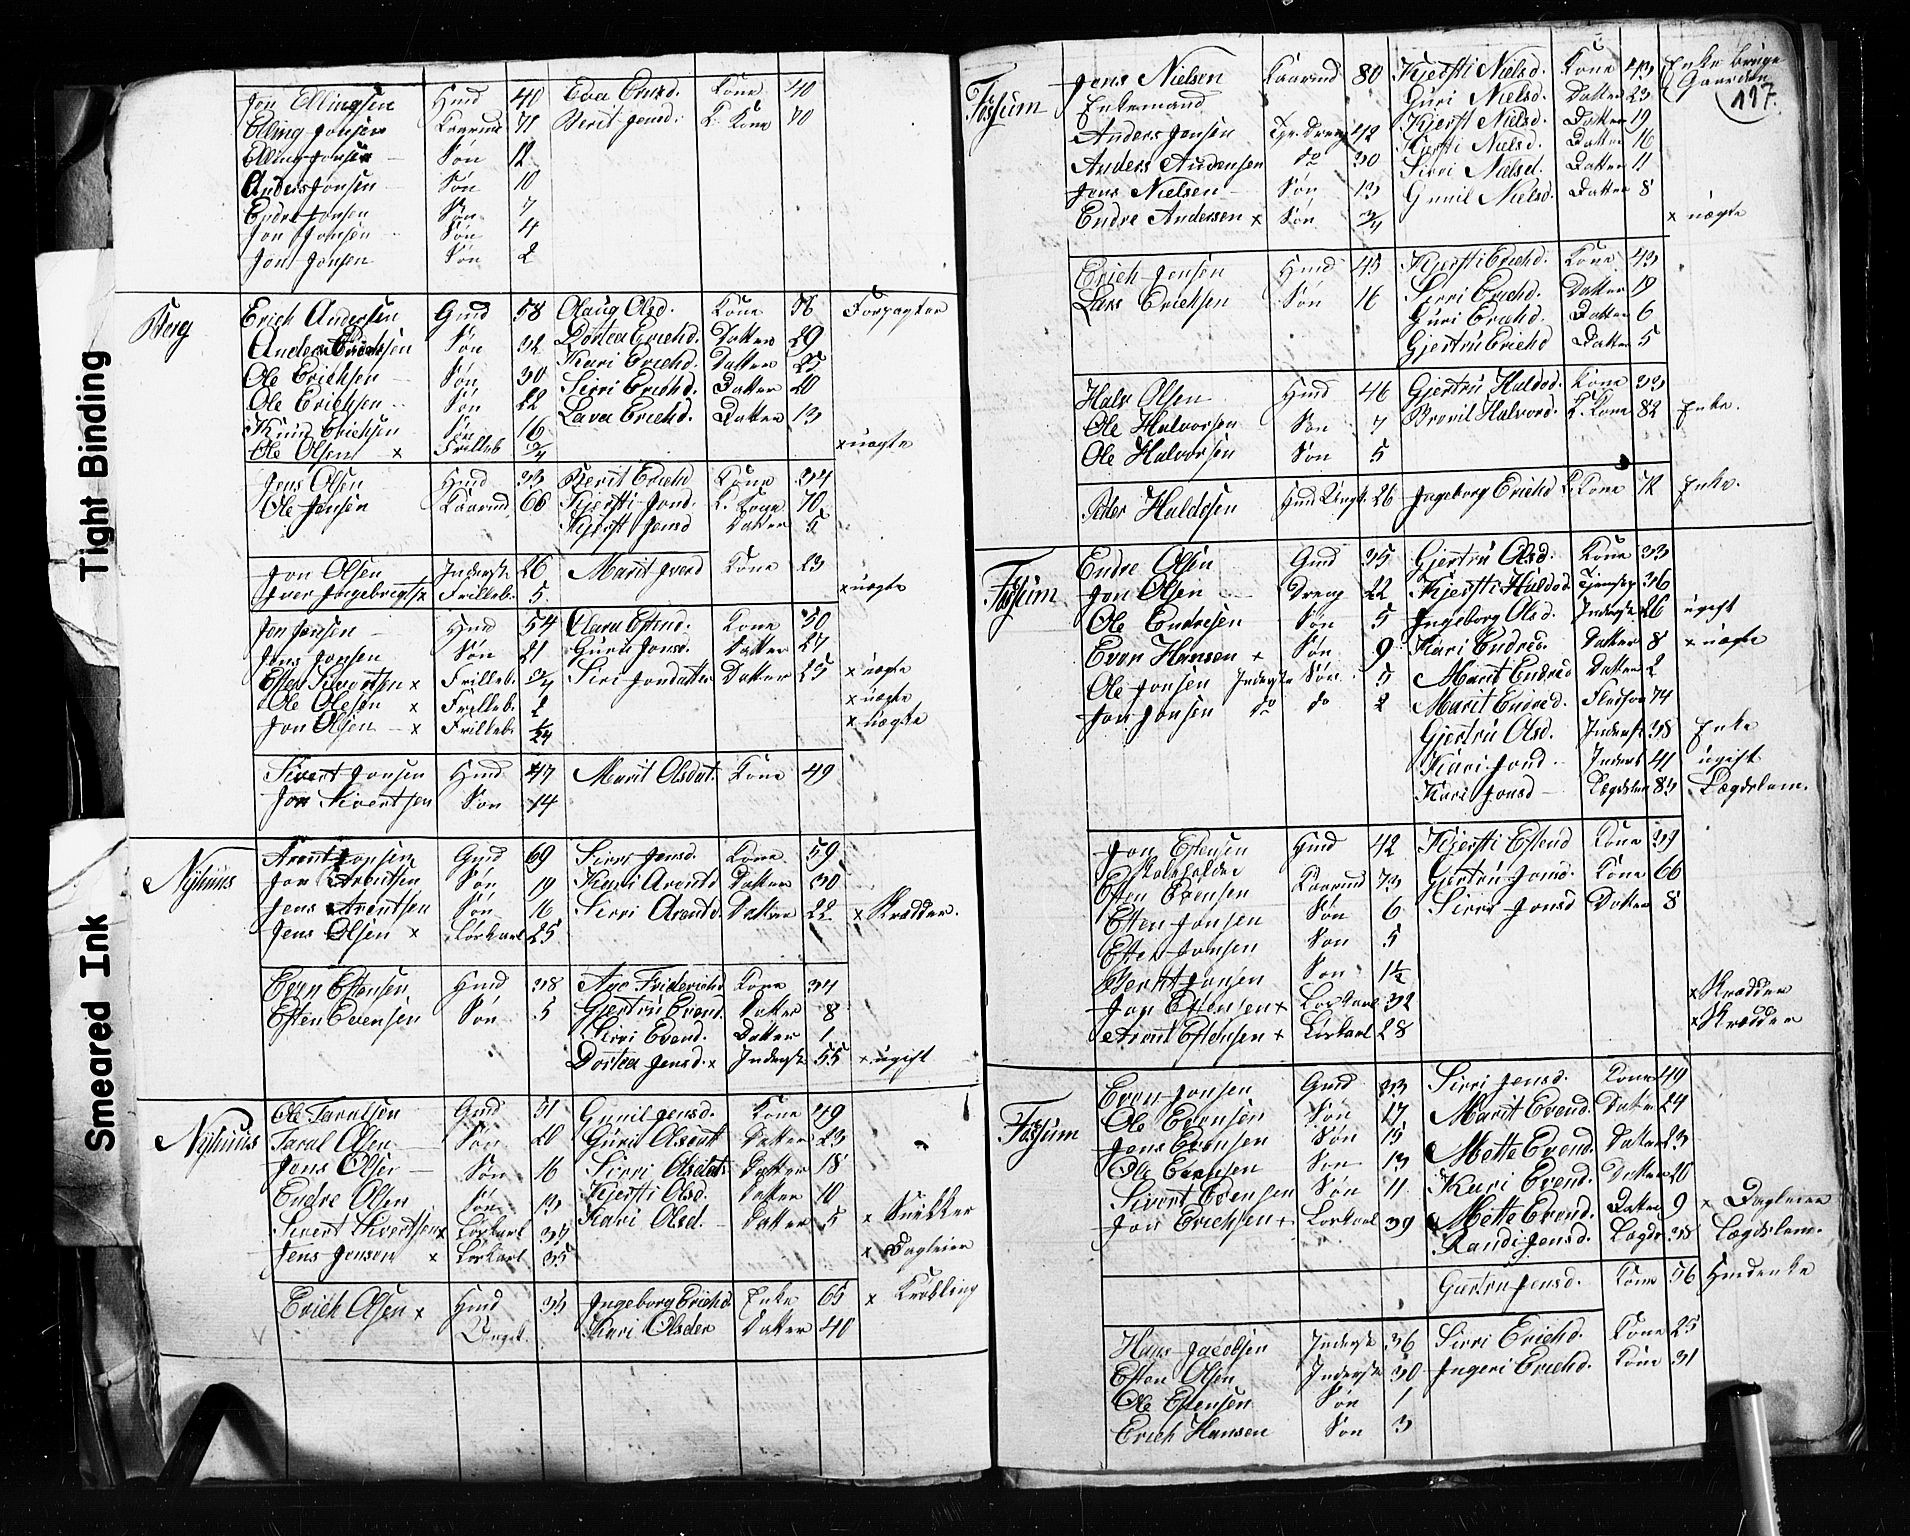 Tight Binding
Smeared Ink
Jon Ellingsen Hmd 40 Eva Ensd. Kone 40
Elling Jonsen Kaarmd 71 Berit Jensd. K. Kone 70
Elling Jonsen Søn 12
Anders Jonsen Søn 10
Endre Jonsen Søn 7
Jon Jonsen Søn 4
Jon Jonsen Søn 2
Berg Erich Andersen Gmd 58 Olaug Olsd. Kone 56 Forpagter
Anders Erichsen Søn 32 Dortea Erichd. Datter 29
Ole Erichsen Søn 30 Kari Erichd. Datter 25
Ole Erichsen Søn 22 Sirri Erichd. Datter 20
Knud Erichsen Søn 16 Lava Erichd. Datter 13
Ole Olsen x Frilleb. 3/4 x uægte
Jens Olsen Hmd 33 Berit Erichd Kone 34
Ole Jensen Kaarmd. 66 Kjersti Jond. K. Kone 70
Kjersti Jensd Datter 5
Jon Olsen Inderst 26 Marit Iverd Kone 23
Iver Ingebrigts. x Frilleb. 5 x uægte
Jon Jensen Hmd 54 Clara Estend. Kone 50
Jens Jonsen Søn 21 Guru Jonsd. Datter 27
Esten Sivertsen x Frilleb. 3/4 Siri Jondatter Datter 25 x uægte
Ole Olesen x Frilleb. 2 x uægte
Jon Olsen x Frilleb. 1/24 x uægte
Sivert Jonsen Hmd 47 Marit Olsdat. Kone 49
Jon Sivertsen Søn 14
Nyhuus Arent Jonsen Gmd 69 Sirri Jensd. Kone 59
Jon Arentsen Søn 19 Kari Arentd Datter 30
Jens Arentsen Søn 16 Sirri Arentd. Datter 22 x Skrædder.
Jens Olsen x Løskarl 25
Even Estensen Hmd 38 Age Friderichd Kone 34
Esten Evensen Søn 5 Gjertrú Evend. Datter 8
Sirri Evend. Datter 1
Dortea Jensd. x Inderst 55 x ugift
Nyhuus Ole Taralsen Gmd 51 Gunil Jensd. Kone 49
Taral Olsen Søn 20 Guru Olsdatt Datter 23
Jons Olsen Søn 16 Sirri Olsdat. Datter 18
Endre Olsen Søn 13 Kjersti Olsd. Datter 10
Sivert Sivertsen x Løskarl 34 Kari Olsd. Datter 5 x Snekker
Jens Jonsen x Løskarl 35 x Dagleier
Erich Olsen x Hmd 35 Ingeborg Erichd Enke 65 x Krøbling
Ungk. Kari Olsder Datter 40
197
Fossum Jens Nielsen Kaarmd 80 Kjersti Nielsd. Kone 43 Enke bruger
Enkemand Guri Nielsd. Datter 23 Gaarden
Anders Jonsen Tjr. Dreng 42 Kjersti Nielsd. Datter 19
Anders Andersen do 30 Kjersti Nielsd. Datter 16
Jons Nielsen Søn 13 Sirri Nielsd. Datter 11
Endre Andersen x Søn 3/4 Gunil Nielsd. Datter 8 x uægte
Erich Jonsen Hmd 45 Kjersti Erichd. Kone 43
Lars Erichsen Søn 16 Sirri Erichd. Datter 19
Guri Erichd. Datter 6
Gjertrú Erichd Datter 5
Halv Olsen Hmd 46 Gjertrú Haldod. Kone 33
Ole Halvorsen Søn 7 Brovil Halvord. K. Kone 82 Enke.
Ole Halvorsen Søn 5
Peder Haldosen Hmd Ungk. 26 Ingeborg Erichd K. Kone 72 Enke.
Fossum Endre Olsen Gmd 35 Gjertrú Olsd. Kone 33
Jon Olsen Dreng 22 Kjersti Haldod. Tjenstep. 36
Ole Endresen Søn 5 Ingeborg Olsd. Inderst 26 ugift
Even Hansen x Søn 9 Kari Endred. Datter 8 x uægte
Ole Jonsen Inderste Søn 5 Marit Endred Datter 2
Jon Jonsen do do 2 Marit Endred. 74
Gjertrú Olsd. Inderst 38 Enke
Kari Jond. Inderst 41 ugift
Kari Jonsd Lægdslem 83 Lægdslem.
Jon Estensen Hmd 42 Kjersti Estend Kone 39
Skoleholder Gjertrú Jonsd. Kone 66
Esten Evensen Kaarmd 73 Sirri Jonsd Datter 8
Esten Jonsen Søn 6
Esten Jonsen Søn 5
Berntt Jonsen Søn 1½
Jon Estensen x Løskarl 32 x Skrædder
Arent Estensen x Løskarl 28 x Skrædder
Fossum Even Jonsen Gmd 33 Sirri Jensd. Kone 49
Ole Evensen Søn 17 Marit Evend. Datter 24
Jens Evensen Søn 15 Mette Evend. Datter 23
Ole Evensen Søn 13 Kari Evend. Datter 20
Sivert Evensen Søn 11 Mette Evend. Datter 9 x Dagleier
Jon Erichsen x Løskarl 39 Randi Jensd. Lægds 38 Lægdslem.
Gjertru Jensd. Kone 56 Hmdenke
Hans Jacobsen Inderst 36 Sirri Erichd. Kone 25
Esten Olsen Inderst 30 Ingeri Erichd. Kone 31
Ole Estensen Søn 1
Erich Hansen Søn 3